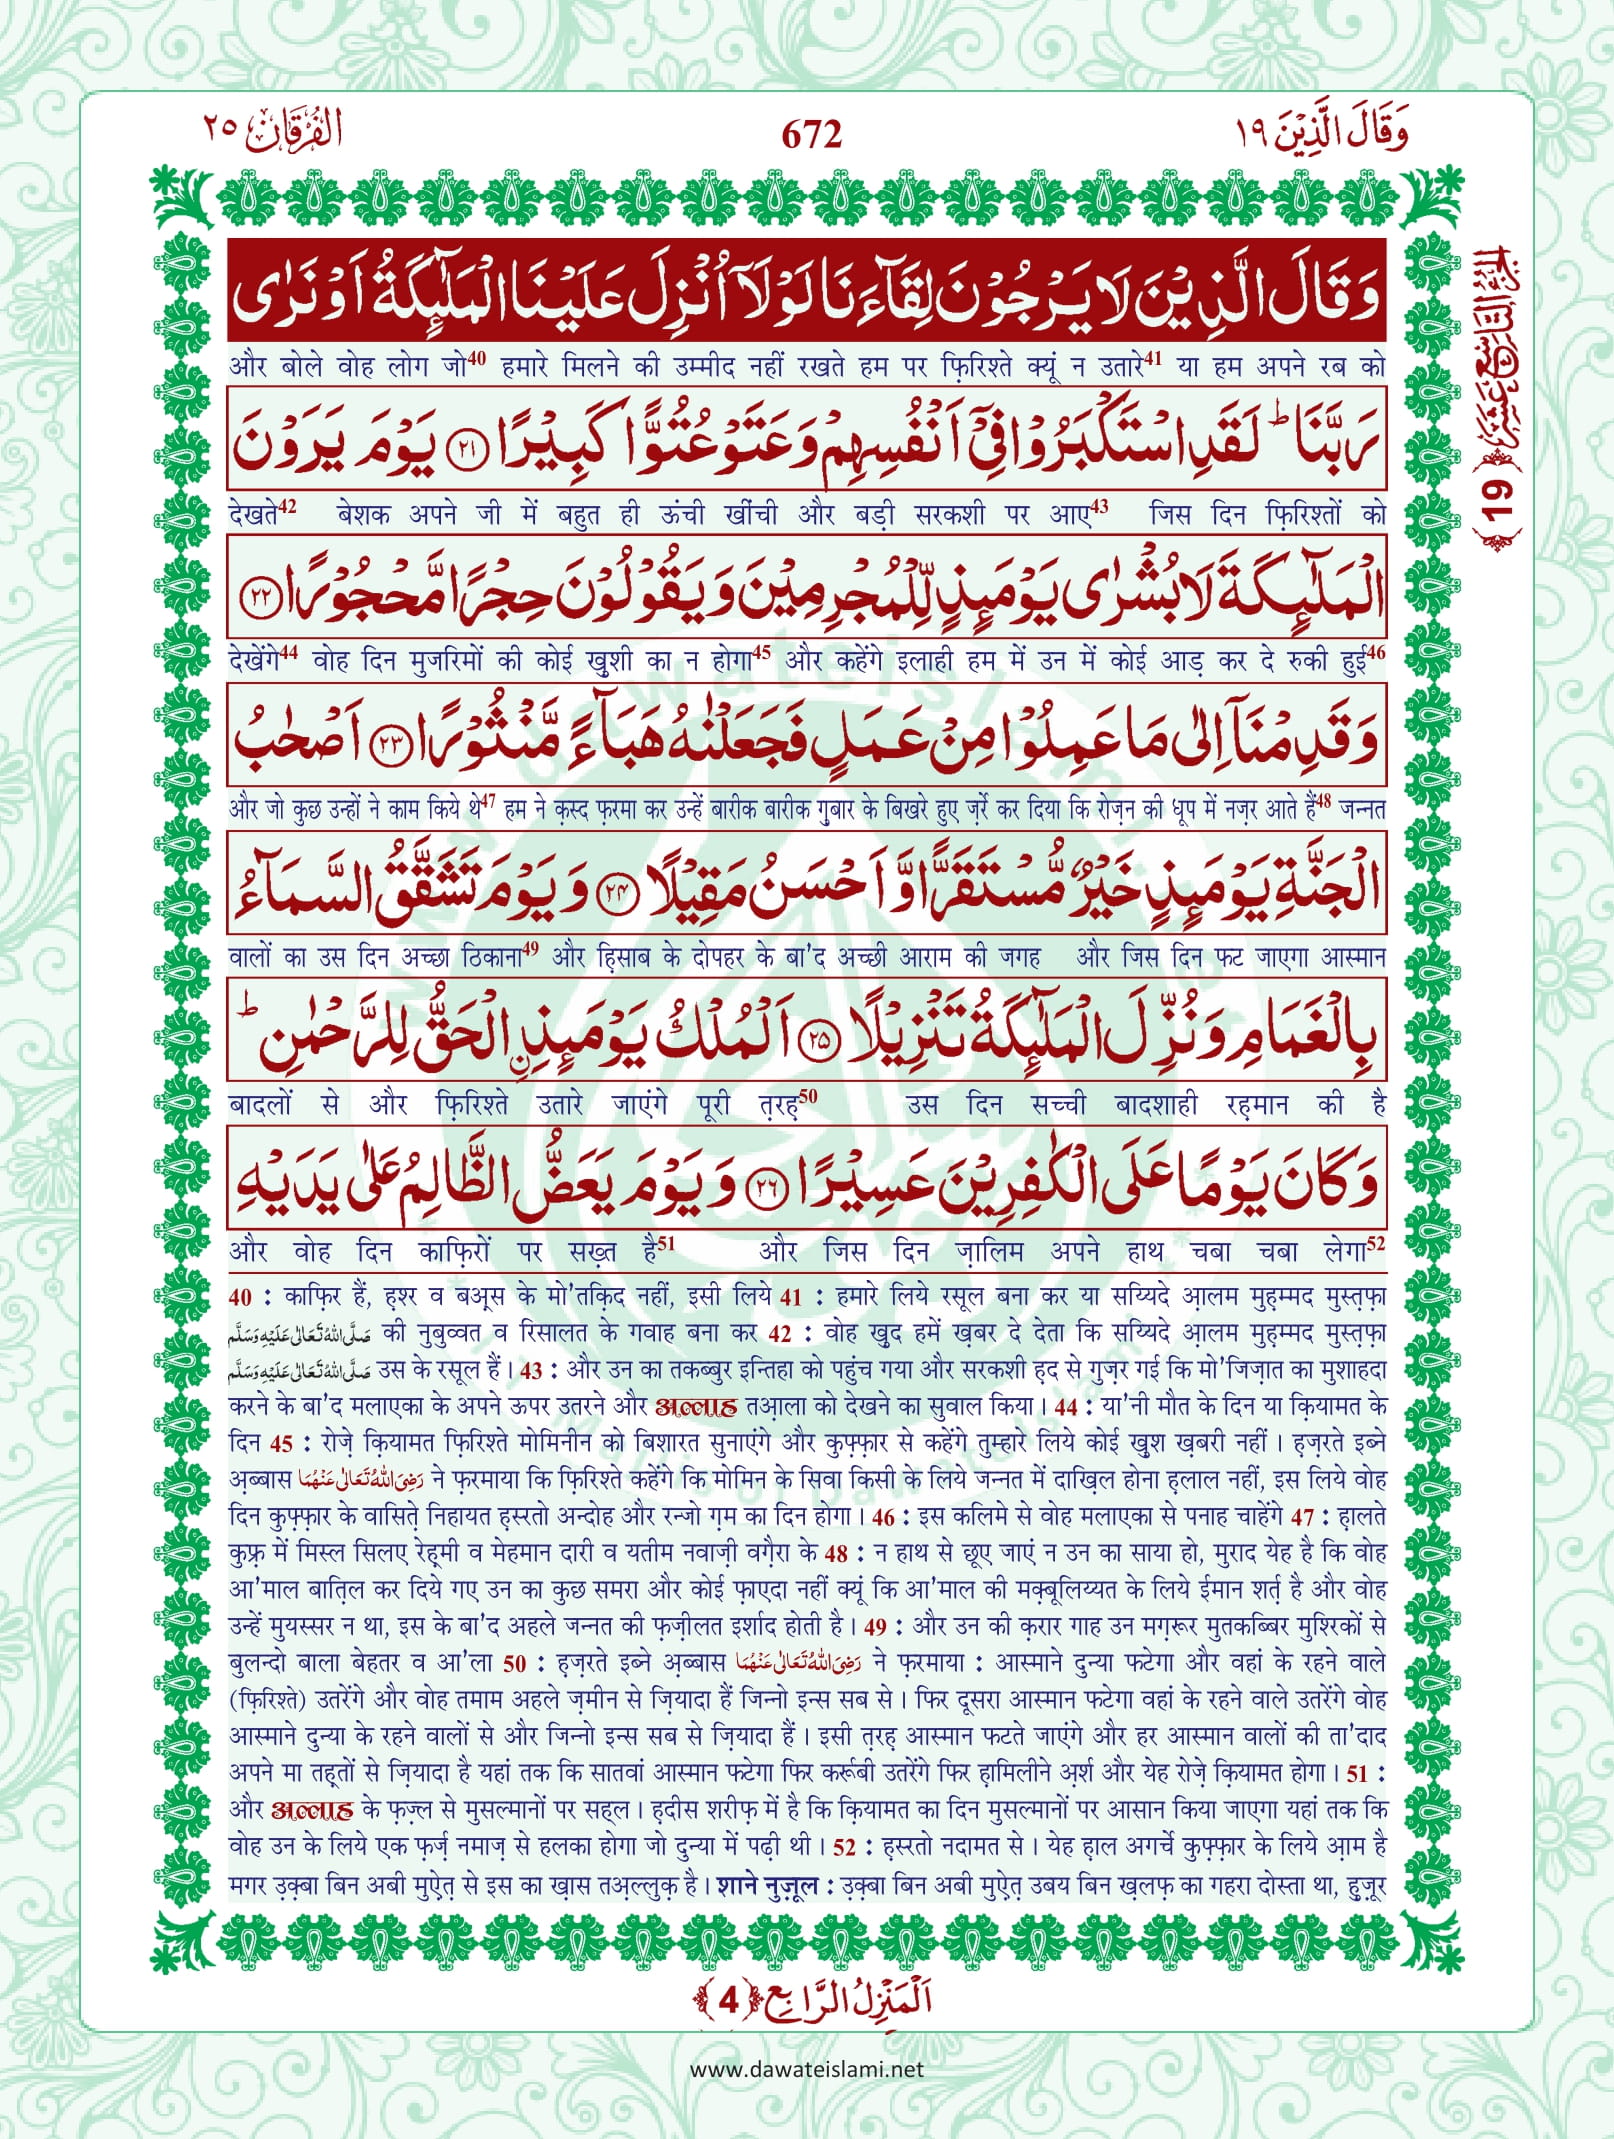 وَقَالَ الَّذِيْنَ ١٩
672
الفُرْقَان ٢٥
وَقَالَ الَّذِيْنَ لَا يَرْجُوْنَ لِقَآءَنَا لَوْلَاۤ اُنْزِلَ عَلَيْنَا الْمَلٰٓىِٕكَةُ اَوْ نَرٰى
और बोले वोह लोग जो40 हमारे मिलने की उम्मीद नहीं रखते हम पर फ़िरिश्ते क्यूं न उतारे41 या हम अपने रब को
رَبَّنَا ؕ لَقَدِ اسْتَكْبَرُوْا فِیْۤ اَنْفُسِهِمْ وَعَتَوْ عُتُوًّا كَبِيْرًا ﴿٢١﴾ يَوْمَ يَرَوْنَ
देखते42 बेशक अपने जी में बहुत ही ऊंची खींची और बड़ी सरकशी पर आए43 जिस दिन फ़िरिश्तों को
الْمَلٰٓىِٕكَةَ لَا بُشْرٰى يَوْمَىِٕذٍ لِّلْمُجْرِمِيْنَ وَيَقُوْلُوْنَ حِجْرًا مَّحْجُوْرًا ﴿٢٢﴾
देखेंगे44 वोह दिन मुजरिमों की कोई खुशी का न होगा45 और कहेंगे इलाही हम में उन में कोई आड़ कर दे रुकी हुई46
وَقَدِمْنَاۤ اِلٰى مَا عَمِلُوْا مِنْ عَمَلٍ فَجَعَلْنٰهُ هَبَآءً مَّنْثُوْرًا ﴿٢٣﴾ اَصْحٰبُ
और जो कुछ उन्हों ने काम किये थे47 हम ने क़स्द फ़रमा कर उन्हें बारीक बारीक गुबार के बिखरे हुए ज़र्रे कर दिया कि रोज़न की धूप में नज़र आते हैं48 जन्नत
الْجَنَّةِ يَوْمَىِٕذٍ خَيْرٌ مُّسْتَقَرًّا وَّاَحْسَنُ مَقِيْلًا ﴿٢٤﴾ وَيَوْمَ تَشَقَّقُ السَّمَآءُ
वालों का उस दिन अच्छा ठिकाना49 और हिसाब के दोपहर के बा'द अच्छी आराम की जगह और जिस दिन फट जाएगा आस्मान
بِالْغَمَامِ وَنُزِّلَ الْمَلٰٓىِٕكَةُ تَنْزِيْلًا ﴿٢٥﴾ اَلْمُلْكُ يَوْمَىِٕذِنِ الْحَقُّ لِلرَّحْمٰنِ ؕ
बादलों से और फ़िरिश्ते उतारे जाएंगे पूरी त़रह़50 उस दिन सच्ची बादशाही रह़मान की है
وَكَانَ يَوْمًا عَلَى الْكٰفِرِيْنَ عَسِيْرًا ﴿٢٦﴾ وَيَوْمَ يَعَضُّ الظَّالِمُ عَلٰى يَدَيْهِ
और वोह दिन काफ़िरों पर सख़्त है51 और जिस दिन ज़ालिम अपने हाथ चबा चबा लेगा52
40 : काफ़िर हैं, ह़श्र व बअ़्स के मो'तक़िद नहीं, इसी लिये 41 : हमारे लिये रसूल बना कर या सय्यिदे आ़लम मुह़म्मद मुस्त़फ़ा
صَلَّى اللّٰهُ تَعَالٰى عَلَيْهِ وَسَلَّم की नुबुव्वत व रिसालत के गवाह बना कर 42 : वोह खुद हमें ख़बर दे देता कि सय्यिदे आ़लम मुह़म्मद मुस्त़फ़ा
صَلَّى اللّٰهُ تَعَالٰى عَلَيْهِ وَسَلَّم उस के रसूल हैं। 43 : और उन का तकब्बुर इन्तिहा को पहुंच गया और सरकशी ह़द से गुज़र गई कि मो'जिज़ात का मुशाहदा
करने के बा'द मलाएका के अपने ऊपर उतरने और अल्लाह तआ़ला को देखने का सुवाल किया। 44 : या'नी मौत के दिन या क़ियामत के
दिन 45 : रोज़े क़ियामत फ़िरिश्ते मोमिनीन को बिशारत सुनाएंगे और कुफ़्फ़ार से कहेंगे तुम्हारे लिये कोई खुश ख़बरी नहीं। ह़ज़रते इब्ने
अ़ब्बास رَضِىَ اللّٰهُ تَعَالٰى عَنْهُمَا ने फ़रमाया कि फ़िरिश्ते कहेंगे कि मोमिन के सिवा किसी के लिये जन्नत में दाख़िल होना ह़लाल नहीं, इस लिये वोह
दिन कुफ़्फ़ार के वासित़े निहायत ह़स्रतो अन्दोह और रन्जो ग़म का दिन होगा। 46 : इस कलिमे से वोह मलाएका से पनाह चाहेंगे 47 : ह़ालते
कुफ़्र में मिस्ल सिलए रेह़्मी व मेहमान दारी व यतीम नवाज़ी वग़ैरा के 48 : न हाथ से छूए जाएं न उन का साया हो, मुराद येह है कि वोह
आ'माल बात़िल कर दिये गए उन का कुछ समरा और कोई फ़ाएदा नहीं क्यूं कि आ'माल की मक़्बूलिय्यत के लिये ईमान शर्त़ है और वोह
उन्हें मुयस्सर न था, इस के बा'द अहले जन्नत की फ़ज़ीलत इर्शाद होती है। 49 : और उन की क़रार गाह उन मग़रूर मुतकब्बिर मुश्रिकों से
बुलन्दो बाला बेहतर व आ'ला 50 : ह़ज़रते इब्ने अ़ब्बास رَضِىَ اللّٰهُ تَعَالٰى عَنْهُمَا ने फ़रमाया : आस्माने दुन्या फटेगा और वहां के रहने वाले
(फ़िरिश्ते) उतरेंगे और वोह तमाम अहले ज़मीन से ज़ियादा हैं जिन्नो इन्स सब से। फिर दूसरा आस्मान फटेगा वहां के रहने वाले उतरेंगे वोह
आस्माने दुन्या के रहने वालों से और जिन्नो इन्स सब से ज़ियादा हैं। इसी त़रह़ आस्मान फटते जाएंगे और हर आस्मान वालों की ता'दाद
अपने मा तह़्तों से ज़ियादा है यहां तक कि सातवां आस्मान फटेगा फिर कर्रूबी उतरेंगे फिर ह़ामिलीने अ़र्श और येह रोज़े क़ियामत होगा। 51 :
और अल्लाह के फ़ज़्ल से मुसल्मानों पर सह्ल। ह़दीस शरीफ़ में है कि क़ियामत का दिन मुसल्मानों पर आसान किया जाएगा यहां तक कि
वोह उन के लिये एक फ़र्ज़ नमाज़ से हलका होगा जो दुन्या में पढ़ी थी। 52 : ह़स्रतो नदामत से। येह ह़ाल अगर्चे कुफ़्फ़ार के लिये आ़म है
मगर उ़क़्बा बिन अबी मुऐ़त़ से इस का ख़ास तअ़ल्लुक़ है। शाने नुज़ूल : उ़क़्बा बिन अबी मुऐ़त़ उबय बिन ख़लफ़ का गहरा दोस्त था, हुज़ूर
الجُزْءُ التَّاسِع عَشَر ﴿19﴾
اَلْمَنْزِلُ الرَّابِع ﴿4﴾
www.dawateislami.net